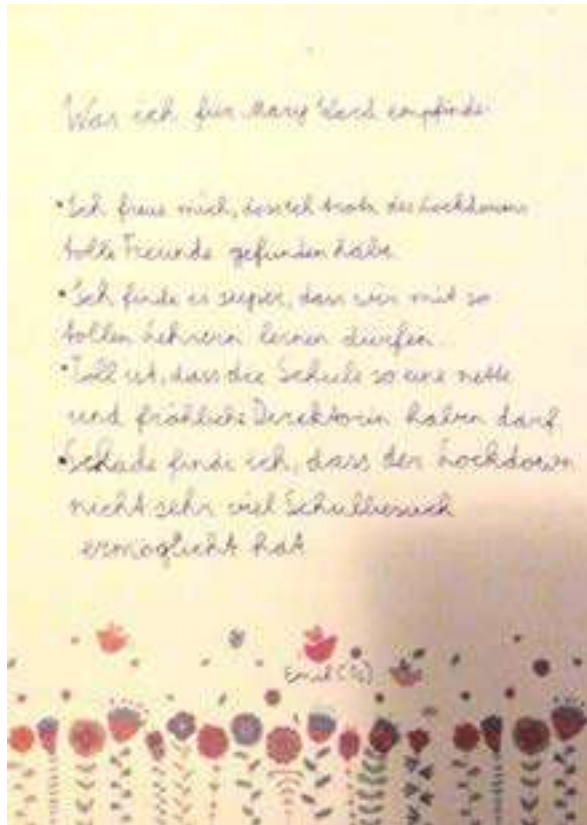 Was ich für Mary Ward empfinde
• Ich freue mich, dass ich trotz des Lockdowns
tolle Freunde gefunden habe.
• Ich finde es super, dass wir mit so
tollen Lehrern lernen dürfen.
• Toll ist, dass die Schule so eine nette
und fröhliche Direktorin haben darf.
• Schade finde ich, dass der Lockdown
nicht sehr viel Schulbesuch
ermöglicht hat
Emil